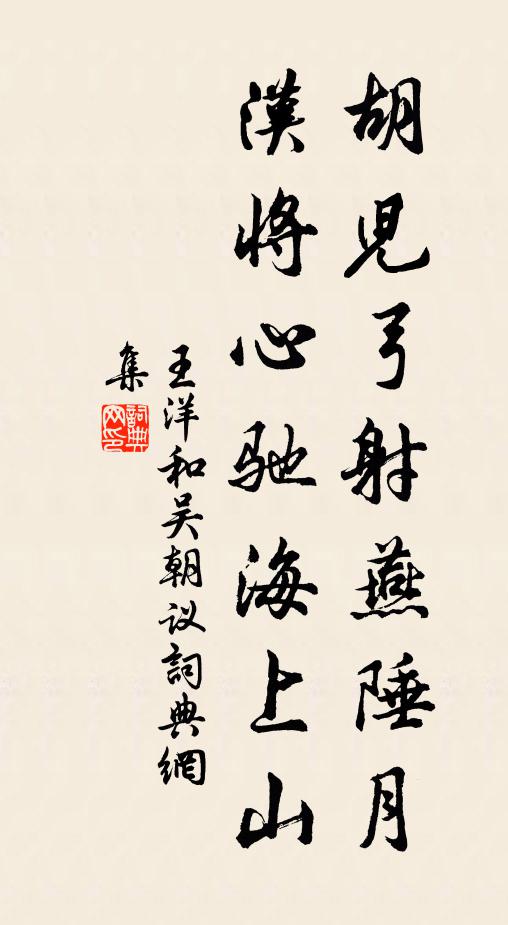 胡兒弓射燕陲月
漢將心驰海上山
王洋和吴朝议詞典網
集
詞典网印